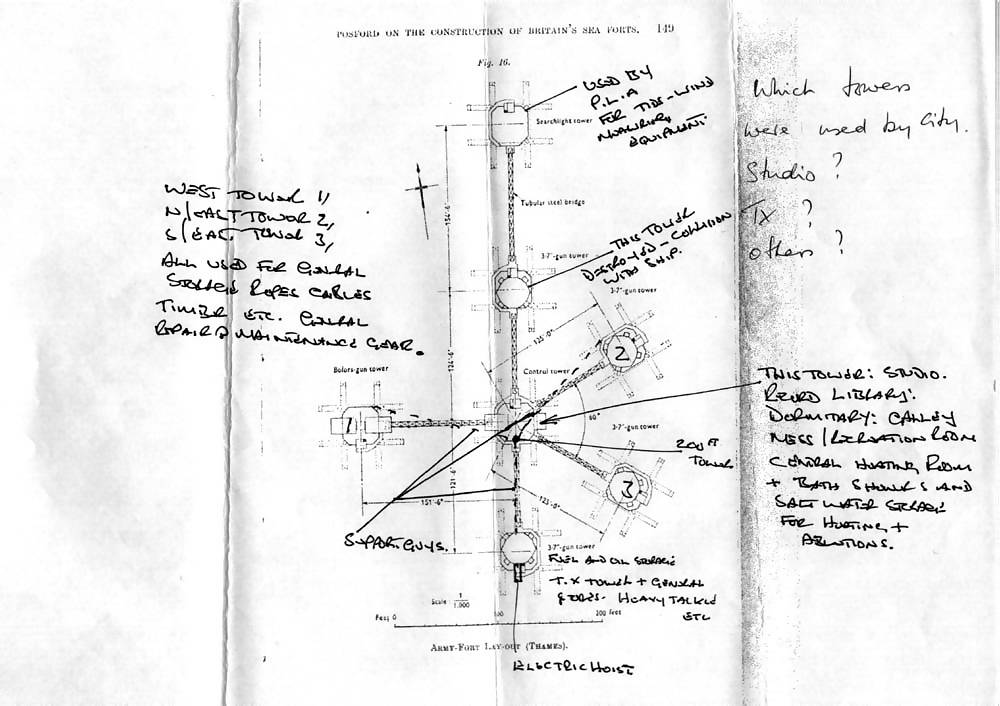 POSFORD ON THE CONSTRUCTION OF BRITAIN'S SEA FORTS. 149
Fig. 16.
USED BY
P.L.A
FOR TIDE-WIND
EQUIPMENT.
Searchlight tower
Which towers
were used by City.
Studio?
TX ?
others?
WEST TOWER 1,
N/EAST TOWER 2,
S/EAST TOWER 3,
ALL USED FOR GENERAL
STORAGE ROPES CABLES
TIMBER ETC. GENERAL
REPAIR & MAINTENANCE GEAR.
154'-6"
Tubular steel bridge
THIS TOWER
DESTROYED-COLLISION
WITH SHIP.
3·7"-gun tower
3·7"-gun tower
125'-0"
2
124'-6"
Bofors-gun tower
Control tower
1
60°
3·7"-gun tower
200FT
TOWER
THIS TOWER: STUDIO.
RECORD LIBRARY:
DORMITARY: GALLEY
MESS/RECREATION ROOM
CENTRAL HEATING ROOM
+ BATH SHOWERS AND
SALT WATER STORAGE
FOR HEATING +
ABLUTIONS.
3
121'-6"
151'-6"
125'-0"
SUPPORT GUYS.
3·7"-gun tower
FUEL AND OIL STORAGE
T.X TOWER + GENERAL
STORES- HEAVY TACKLE
ETC
Scale: 1/1.000
Feet 0 100 200 feet
ARMY-FORT LAY-OUT (THAMES).
ELECTRIC HOIST